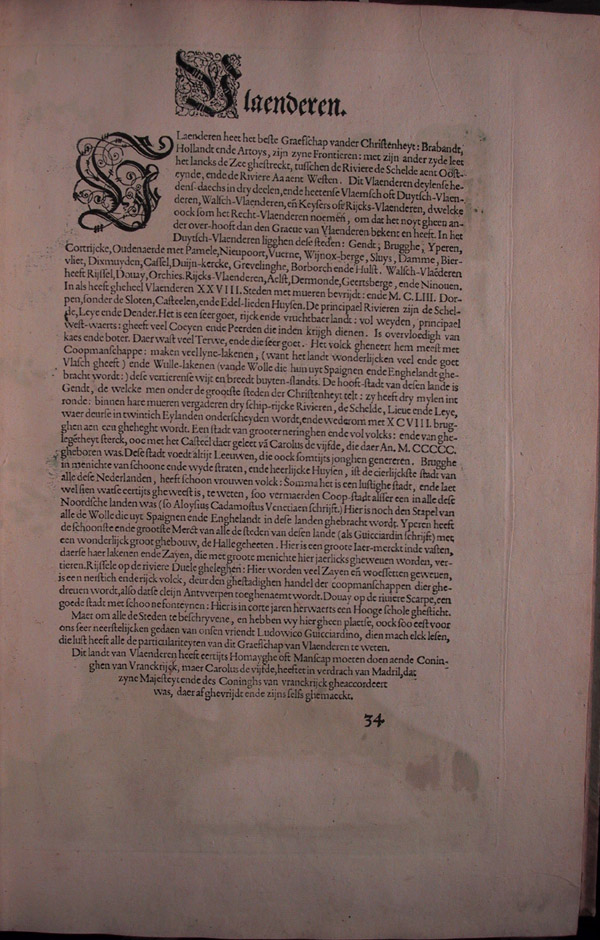 Vlaenderen.
VLaenderen heet het beste Graefschap vander Christenheyt: Brabandt,
Hollandt ende Artoys, zijn zyne Frontieren: met zijn ander zyde leet
het lancks de Zee ghestreckt, tusschen de Riviere de Schelde aent Oost-
eynde, ende de Riviere Aa aent Westen. Dit Vlaenderen deylense he-
dens-daechs in dry deelen, ende heetense Vlaemsch oft Duytsch-Vlaen-
deren, Walsch-Vlaenderen, eñ Keysers oft Rijcks-Vlaenderen, dwelcke
oock som het Recht-Vlaenderen noemēn, om dat het noyt gheen an-
der over-hooft dan den Graeue van Vlaenderen bekent en heeft. In het
Duytsch-Vlaenderen ligghen dese steden: Gendt, Brugghe, Yperen,
Cortrijcke, Oudenaerde met Pamele, Nieupoort, Vuerne, Wijnox-berge, Sluys, Damme, Bier-
vliet, Dixmuyden, Cassel, Duijn-kercke, Grevelinghe, Borborch ende Hulst. Walsch-Vlaēderen
heeft Rijssel, Douay, Orchies. Rijcks-Vlaenderen, Aelst, Dermonde, Geertsberge, ende Ninouen.
In als heeft gheheel Vlaenderen XXVIII. Steden met mueren bevrijdt: ende M. C. LIII. Dor-
pen, sonder de Sloten, Casteelen, ende Edel-lieden Huysen. De principael Rivieren zijn de Schel-
de, Leye ende Dender. Het is een seer goet, rijck ende vruchtbaer landt: vol weyden, principael
West-waerts: gheeft veel Coeyen ende Peerden die inden krijgh dienen. Is overvloedigh van
kaes ende boter. Daer wast veel Terwe, ende die seer goet. Het volck gheneert hem meest met
Coopmanschappe: maken veel lyne-lakenen, (want het landt wonderlijcken veel ende goet
Vlasch gheeft) ende Wulle-lakenen (vande Wolle die hun uyt Spaignen ende Enghelandt ghe-
bracht wordt:) dese vertierense wijt en breedt buyten-slandts. De hooft-stadt van desen lande is
Gendt, de welcke men onder de grootste steden der Christenheyt telt: zy heeft dry mylen int
ronde: binnen hare mueren vergaderen dry schip-rijcke Rivieren, de Schelde, Lieue ende Leye,
waer deurse in twintich Eylanden onderscheyden wordt, ende wederom met XCVIII. brug-
ghen aen een gheheght wordt. Een stadt van grooter neringhen ende vol volcks: ende van ghe-
legētheyt sterck, ooc met het Casteel daer geleet vā Carolus de vijfde, die daer An. M. CCCCC.
gheboren was. Dese stadt voedt altijt Leeuwen, die oock somtijts jonghen genereren. Brugghe
in menichte van schoone ende wyde straten, ende heerlijcke Huysen, ist de cierlijckste stadt van
alle dese Nederlanden, heeft schoon vrouwen volck: Somma het is een lustighe stadt, ende laet
wel sien watse eertijts gheweest is, te weten, soo vermaerden Coop-stadt alsser een in alle dese
Noordsche landen was (so Aloysius Cadamostus Venetiaen schrijft.) Hier is noch den Stapel van
alle de Wolle die uyt Spaignen ende Enghelandt in dese landen ghebracht wordt. Yperen heeft
de schoonste ende grootste Merct van alle de steden van desen lande (als Guicciardin schrijft) met
een wonderlijck groot ghebouw, de Halle geheeten. Hier is een groote Iaer-merckt inde vasten,
daerse haer lakenen ende Zayen, die met groote menichte hier jaerlijcks ghewenen worden, ver-
tieren. Rijssele op de riviere Duele gheleghen: Hier worden veel Zayen eñ woessetten geweuen,
is een nerstich ende rijck volck, deur den ghestadighen handel der coopmanschappen dier ghe-
dreuen wordt, also datse cleijn Antvverpen toeghenaemt wordt. Douay op de riuiere Scarpe, een
goede stadt met schoone fonteynen: Hier is in corte jaren herwaerts een Hooge schole ghesticht.
Maer om alle de Steden te beschryvene, en hebben wy hier gheen plaetse, oock soo eest voor
ons seer neerstelijcken gedaen van onsen vriendt Ludowico Guicciardino, dien mach elck lesen,
die lust heeft alle de particulariteyten van dit Graefschap van Vlaenderen te weten.
Dit landt van Vlaenderen heeft eertijts Homayghe oft Manscap moeten doen aende Conin-
ghen van Vranckrijck, maer Carolus de vijfde, heeftet in verdrach van Madril, dat
zyne Majesteyt ende des Coninghs van vranckrijck gheaccordeert
was, daer af ghevrijdt ende zijns selfs ghemaeckt.
34